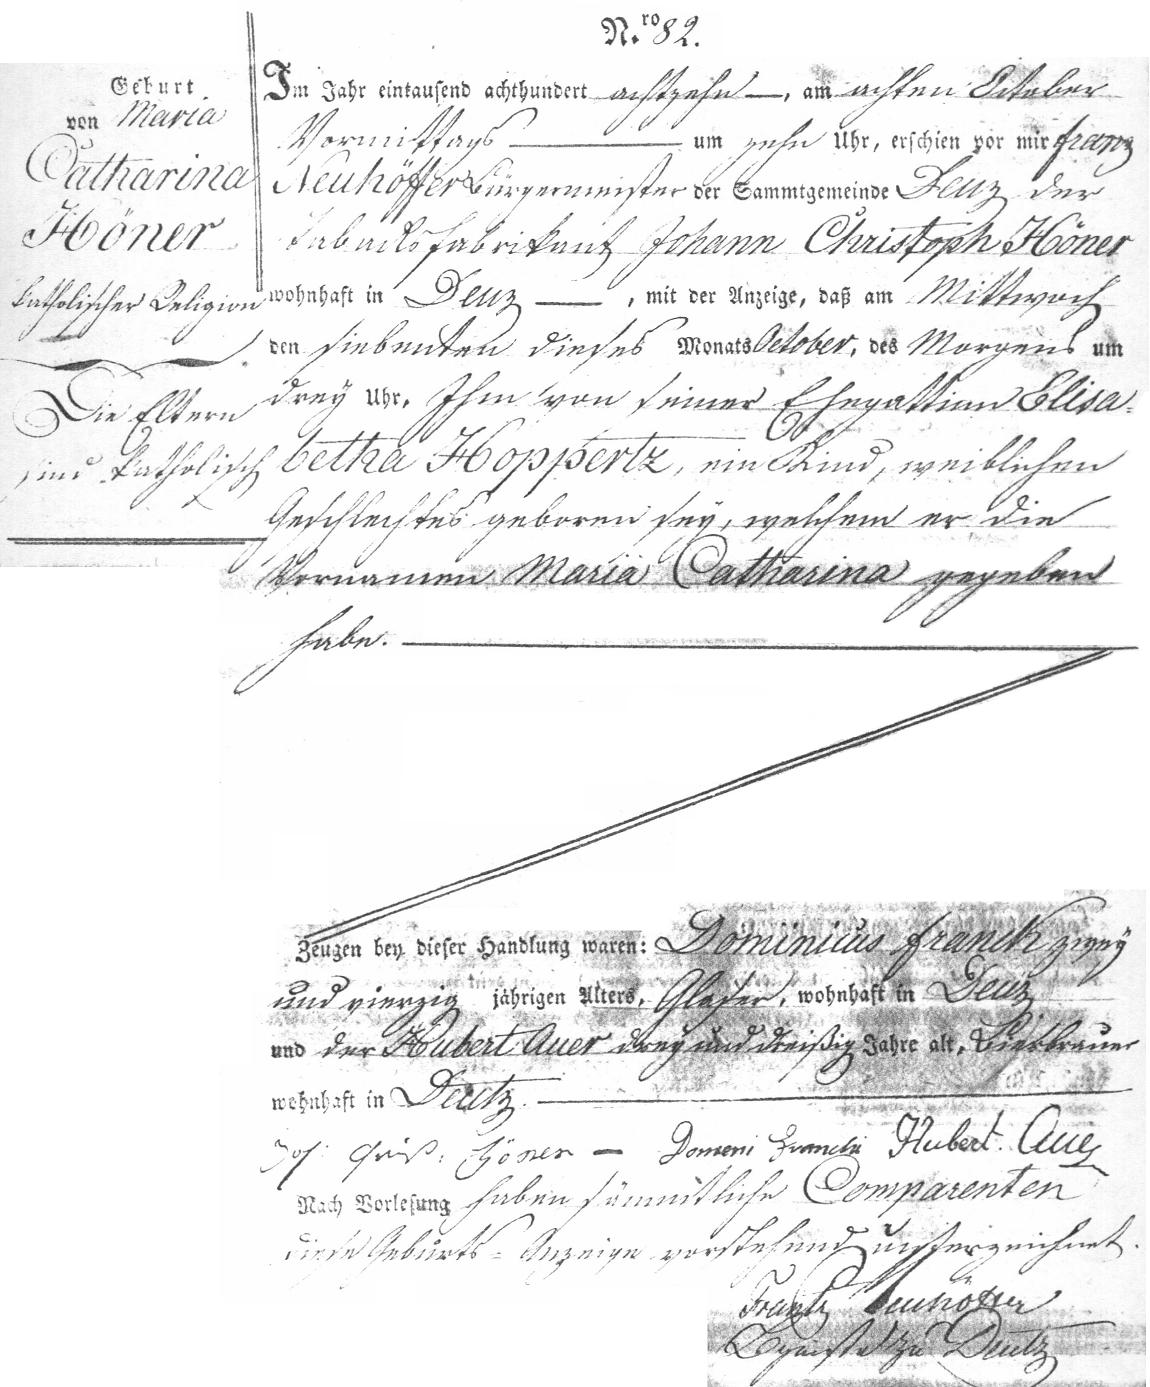 N.ro 82.
Geburt
von Maria
Catharina
Höner
Catholischer Religion
Die Eltern
sind Catholisch
Im Jahr eintausend achthundert achtzehn —, am achten October
Vormittags — um zehn Uhr, erschien vor mir Franz
Neuhöffer Bürgermeister der Sammtgemeinde Deuz der
Tabacksfabrikant Johann Christoph Höner
wohnhaft in Deuz —, mit der Anzeige, daß am Mittwoch
den siebenten dieses Monats October, des Morgens um
drey Uhr, Ihm von seiner Ehegattinn Elisa-
betha Hoppertz, ein Kind, weiblichen
Geschlechtes geboren sey, welchem er die
Vornamen Maria Catharina gegeben
habe. —
Zeugen bey dieser Handlung waren: Dominicus Franck zwey
und vierzig jährigen Alters, Glaser, wohnhaft in Deuz
und der Hubert Auer drey und dreißig Jahre alt, Bierbrauer
wohnhaft in Deutz. —
Joh: Chrisß: Höner — Domeni Franck Hubert Auer
Nach Vorlesung haben sämmtliche Comparenten
diese Geburts-Anzeige vorstehend unterzeichnet.
Frantz Neuhöffer
zu Deutz